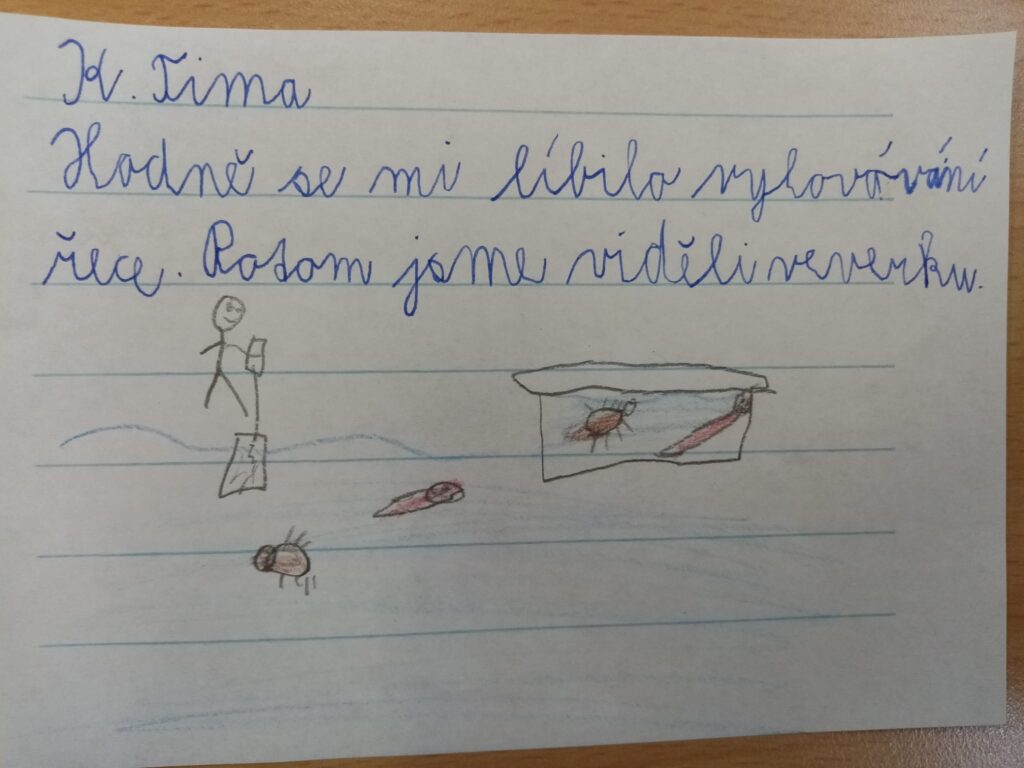 K. Tima
Hodně se mi líbilo vylovování
řece. Potom jsme viděli veverku.